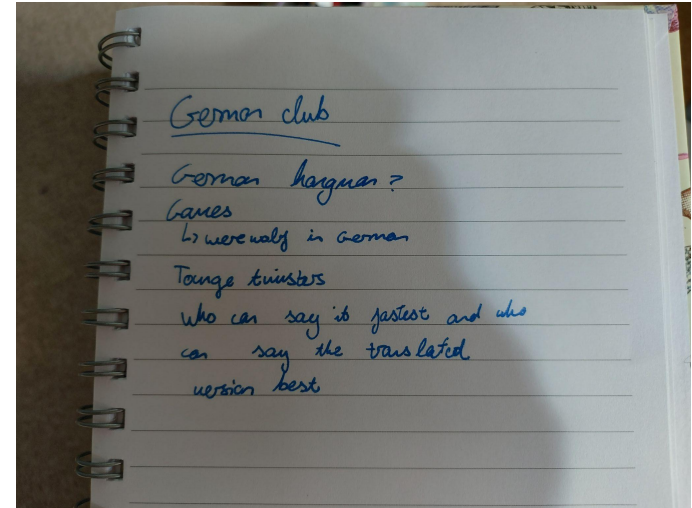 German club
German hangman?
Games
↳ werewolf in German
Tounge twisters
Who can say it fastest and who
can say the translated
version best